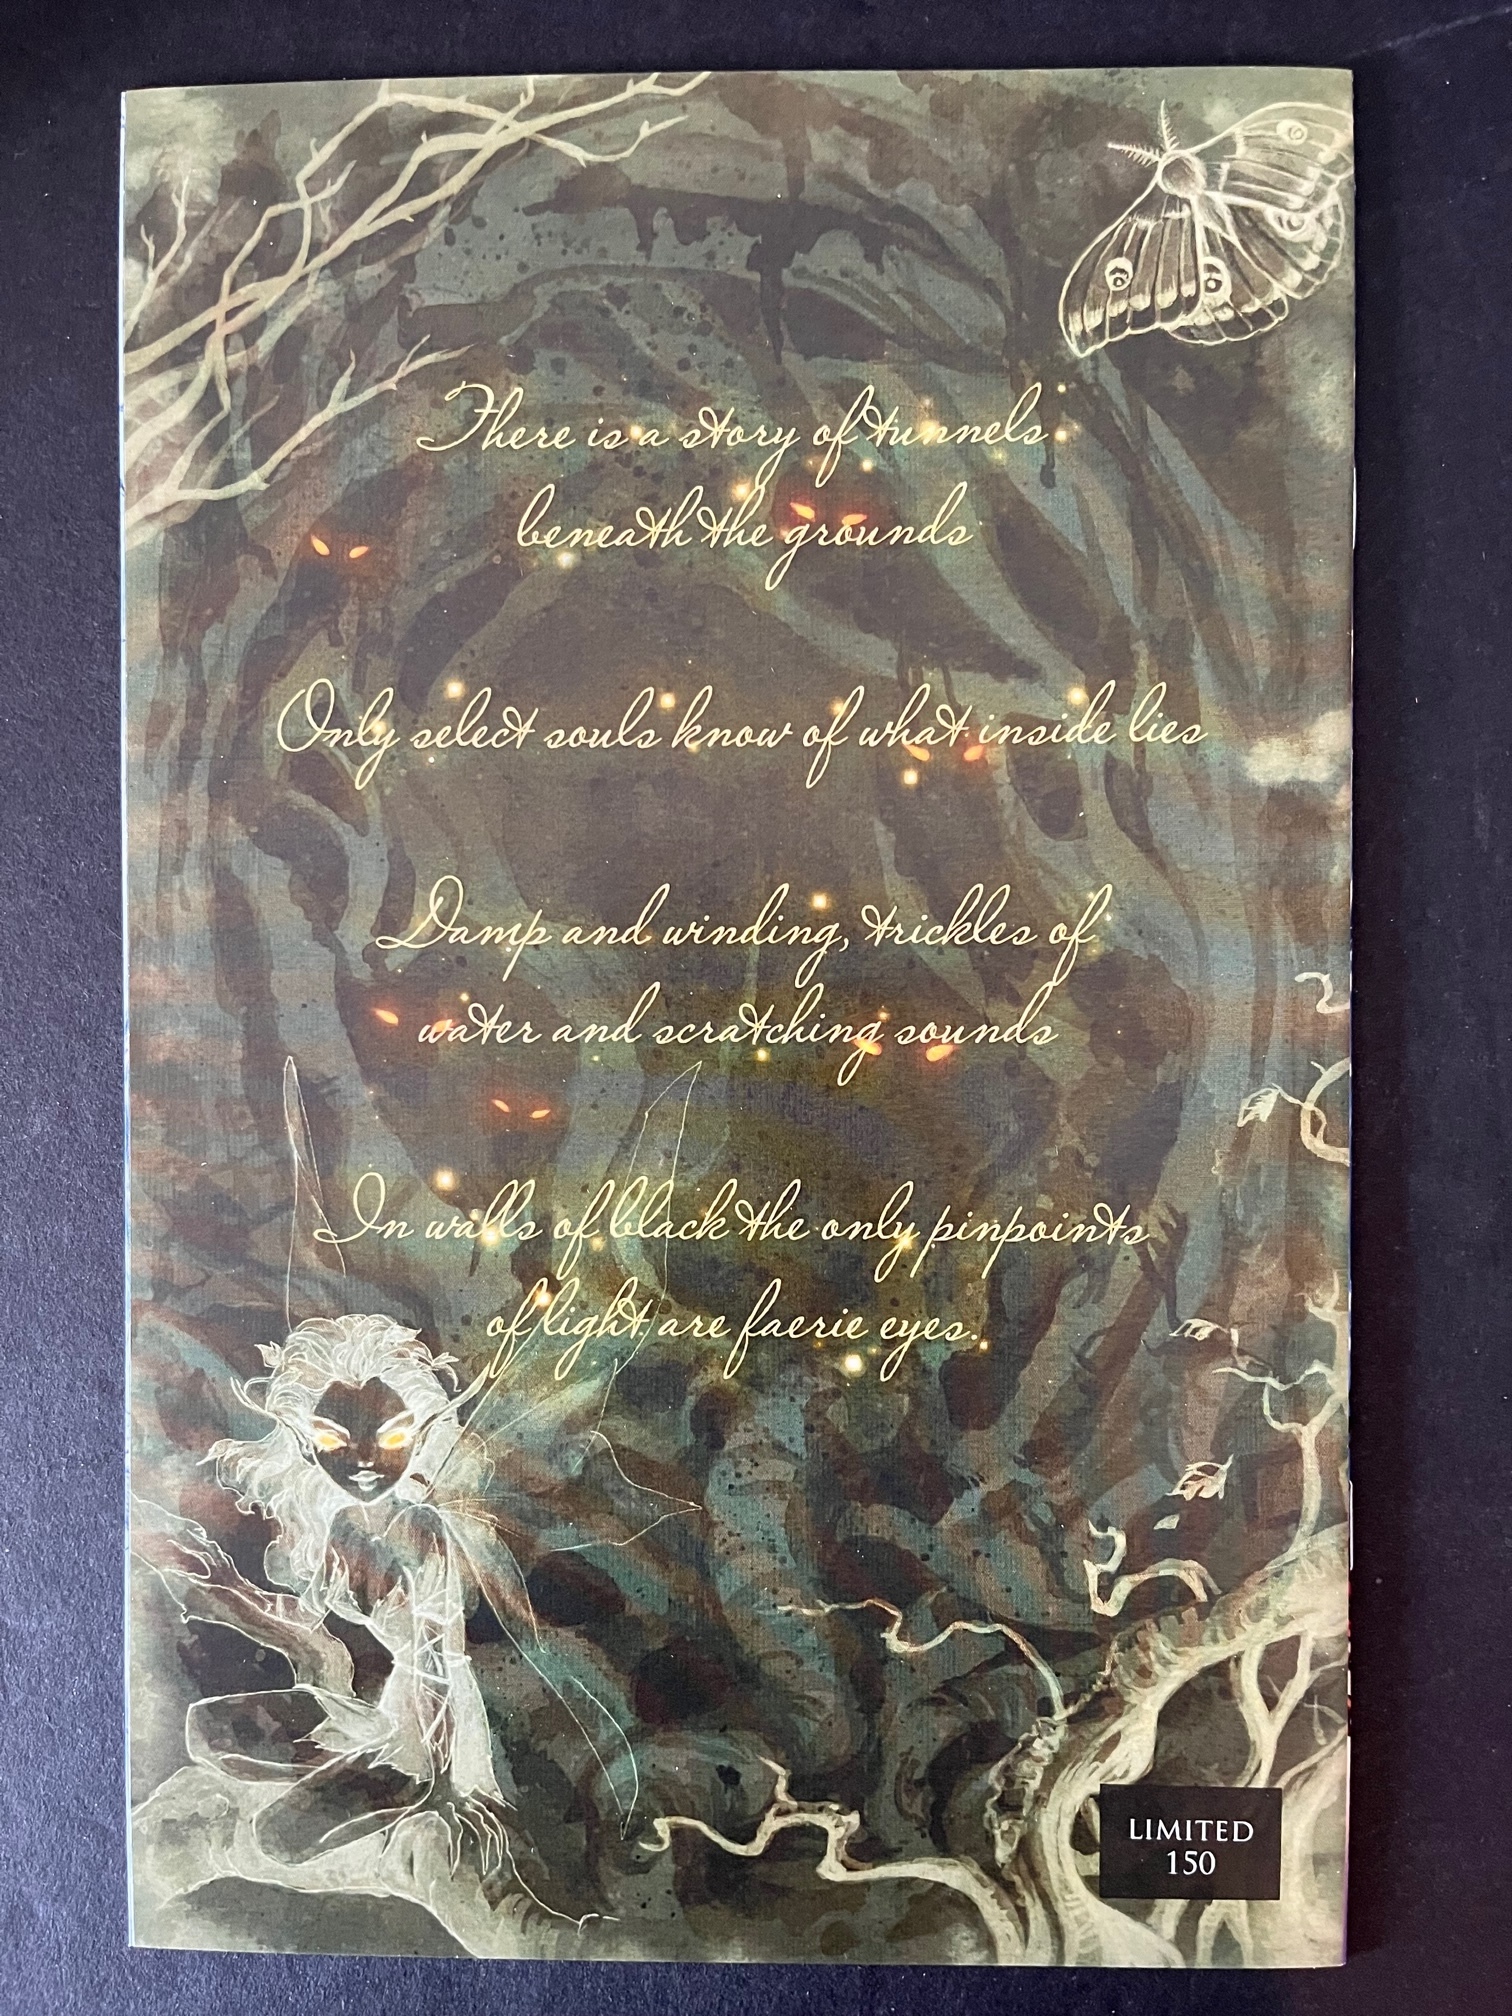 There is a story of tunnels
beneath the grounds
Only select souls know of what inside lies
Damp and winding, trickles of
water and scratching sounds
In walls of black the only pinpoints
of light are faerie eyes.
LIMITED
150